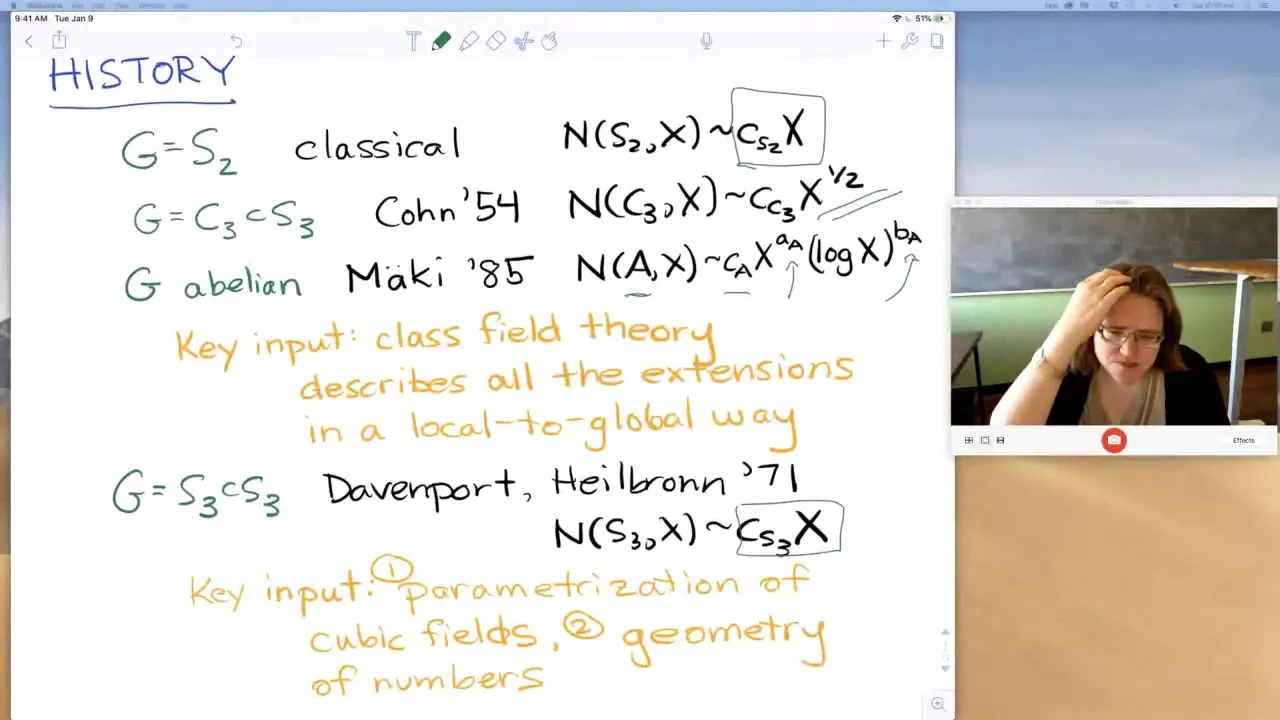 9:41 AM Tue Jan 9
51%
HISTORY
G=S₂ classical N(S₂,X)~c_{S₂}X
G=C₃⊂S₃ Cohn '54 N(C₃,X)~c_{C₃}X^{1/2}
G abelian Mäki '85 N(A,X)~c_A X^{a_A}(log X)^{b_A}
Key input: class field theory
describes all the extensions
in a local-to-global way
G=S₃⊂S₃ Davenport, Heilbronn '71
N(S₃,X)~c_{S₃}X
Key input: ① parametrization of
cubic fields, ② geometry
of numbers
Effects